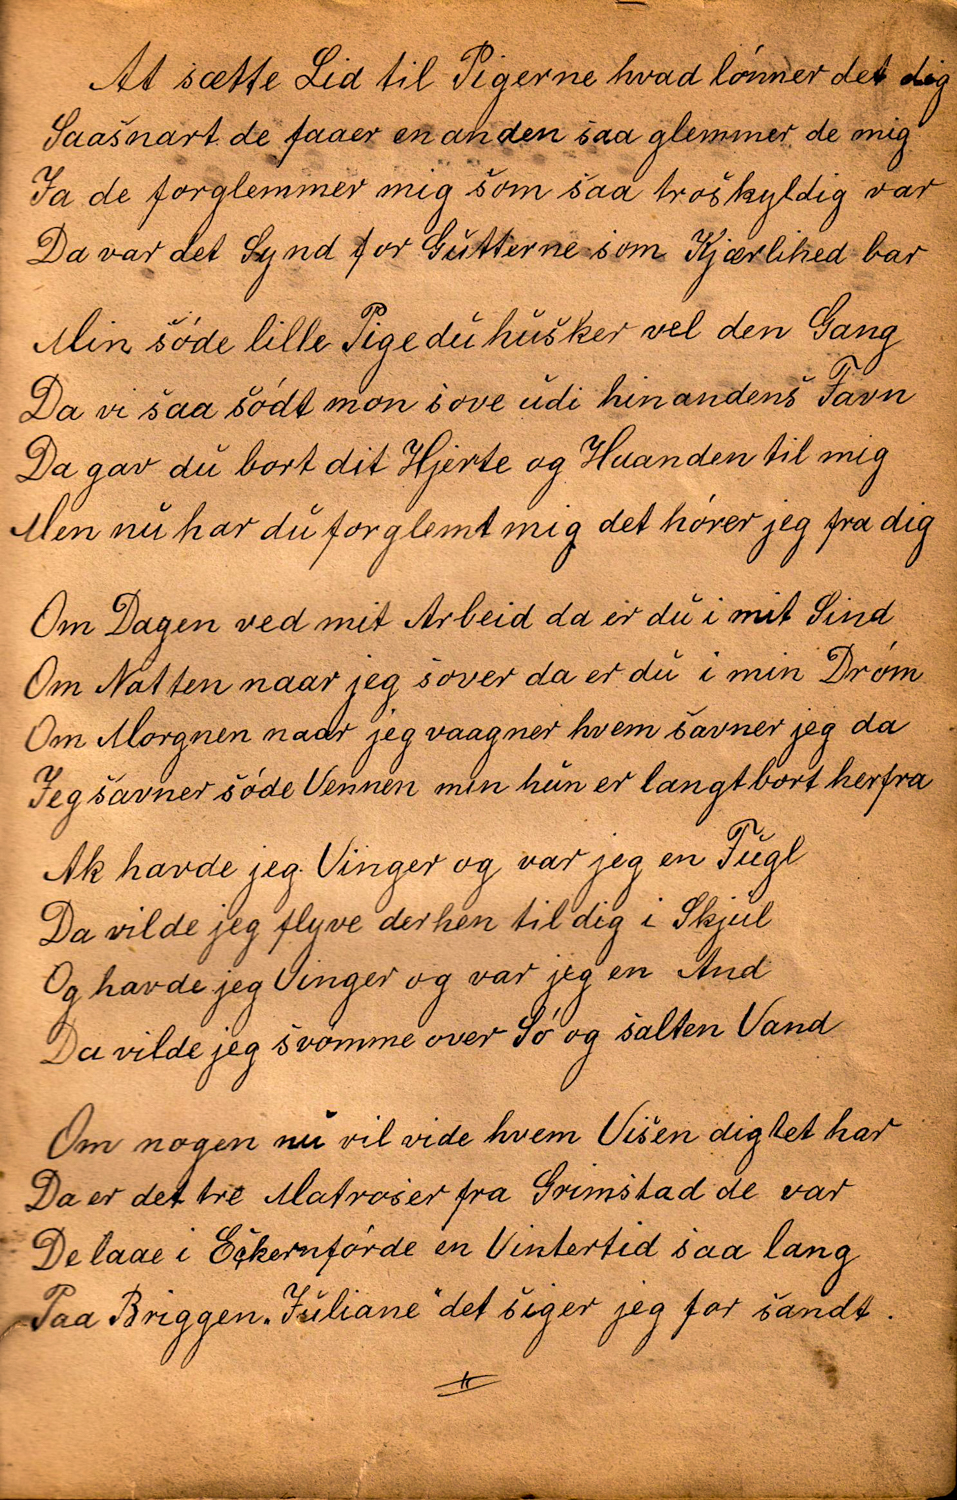 At sætte Lid til Pigerne hvad lónner det dig
Saasnart de faaer en anden saa glemmer de mig
Ja de forglemmer mig som saa troskyldig var
Da var det Synd for Gutterne som Kjærlihed bar
Min sóde lille Pige du husker vel den Gang
Da vi saa södt mon sove udi hinandens Favn
Da gav du bort dit Hjerte og Haanden til mig
Men nu har du forglemt mig det hórer jeg fra dig
Om Dagen ved mit Arbeid da er du i mit Sind
Om Natten naar jeg sover da er du i min Dróm
Om Morgnen naar jeg vaagner hvem savner jeg da
Jeg savner sóde Vennen min hun er langt bort herfra
Ak havde jeg Vinger og var jeg en Fugl
Da vilde jeg flyve derhen til dig i Skjul
Og havde jeg Vinger og var jeg en And
Da vilde jeg svómme over Só og salten Vand
Om nogen nu vil vide hvem Visen digtet har
Da er det tre Matroser fra Grimstad de var
De laae i Eckernfórde en Vintertid saa lang
Paa Briggen „Juliane“ det siger jeg for sandt.